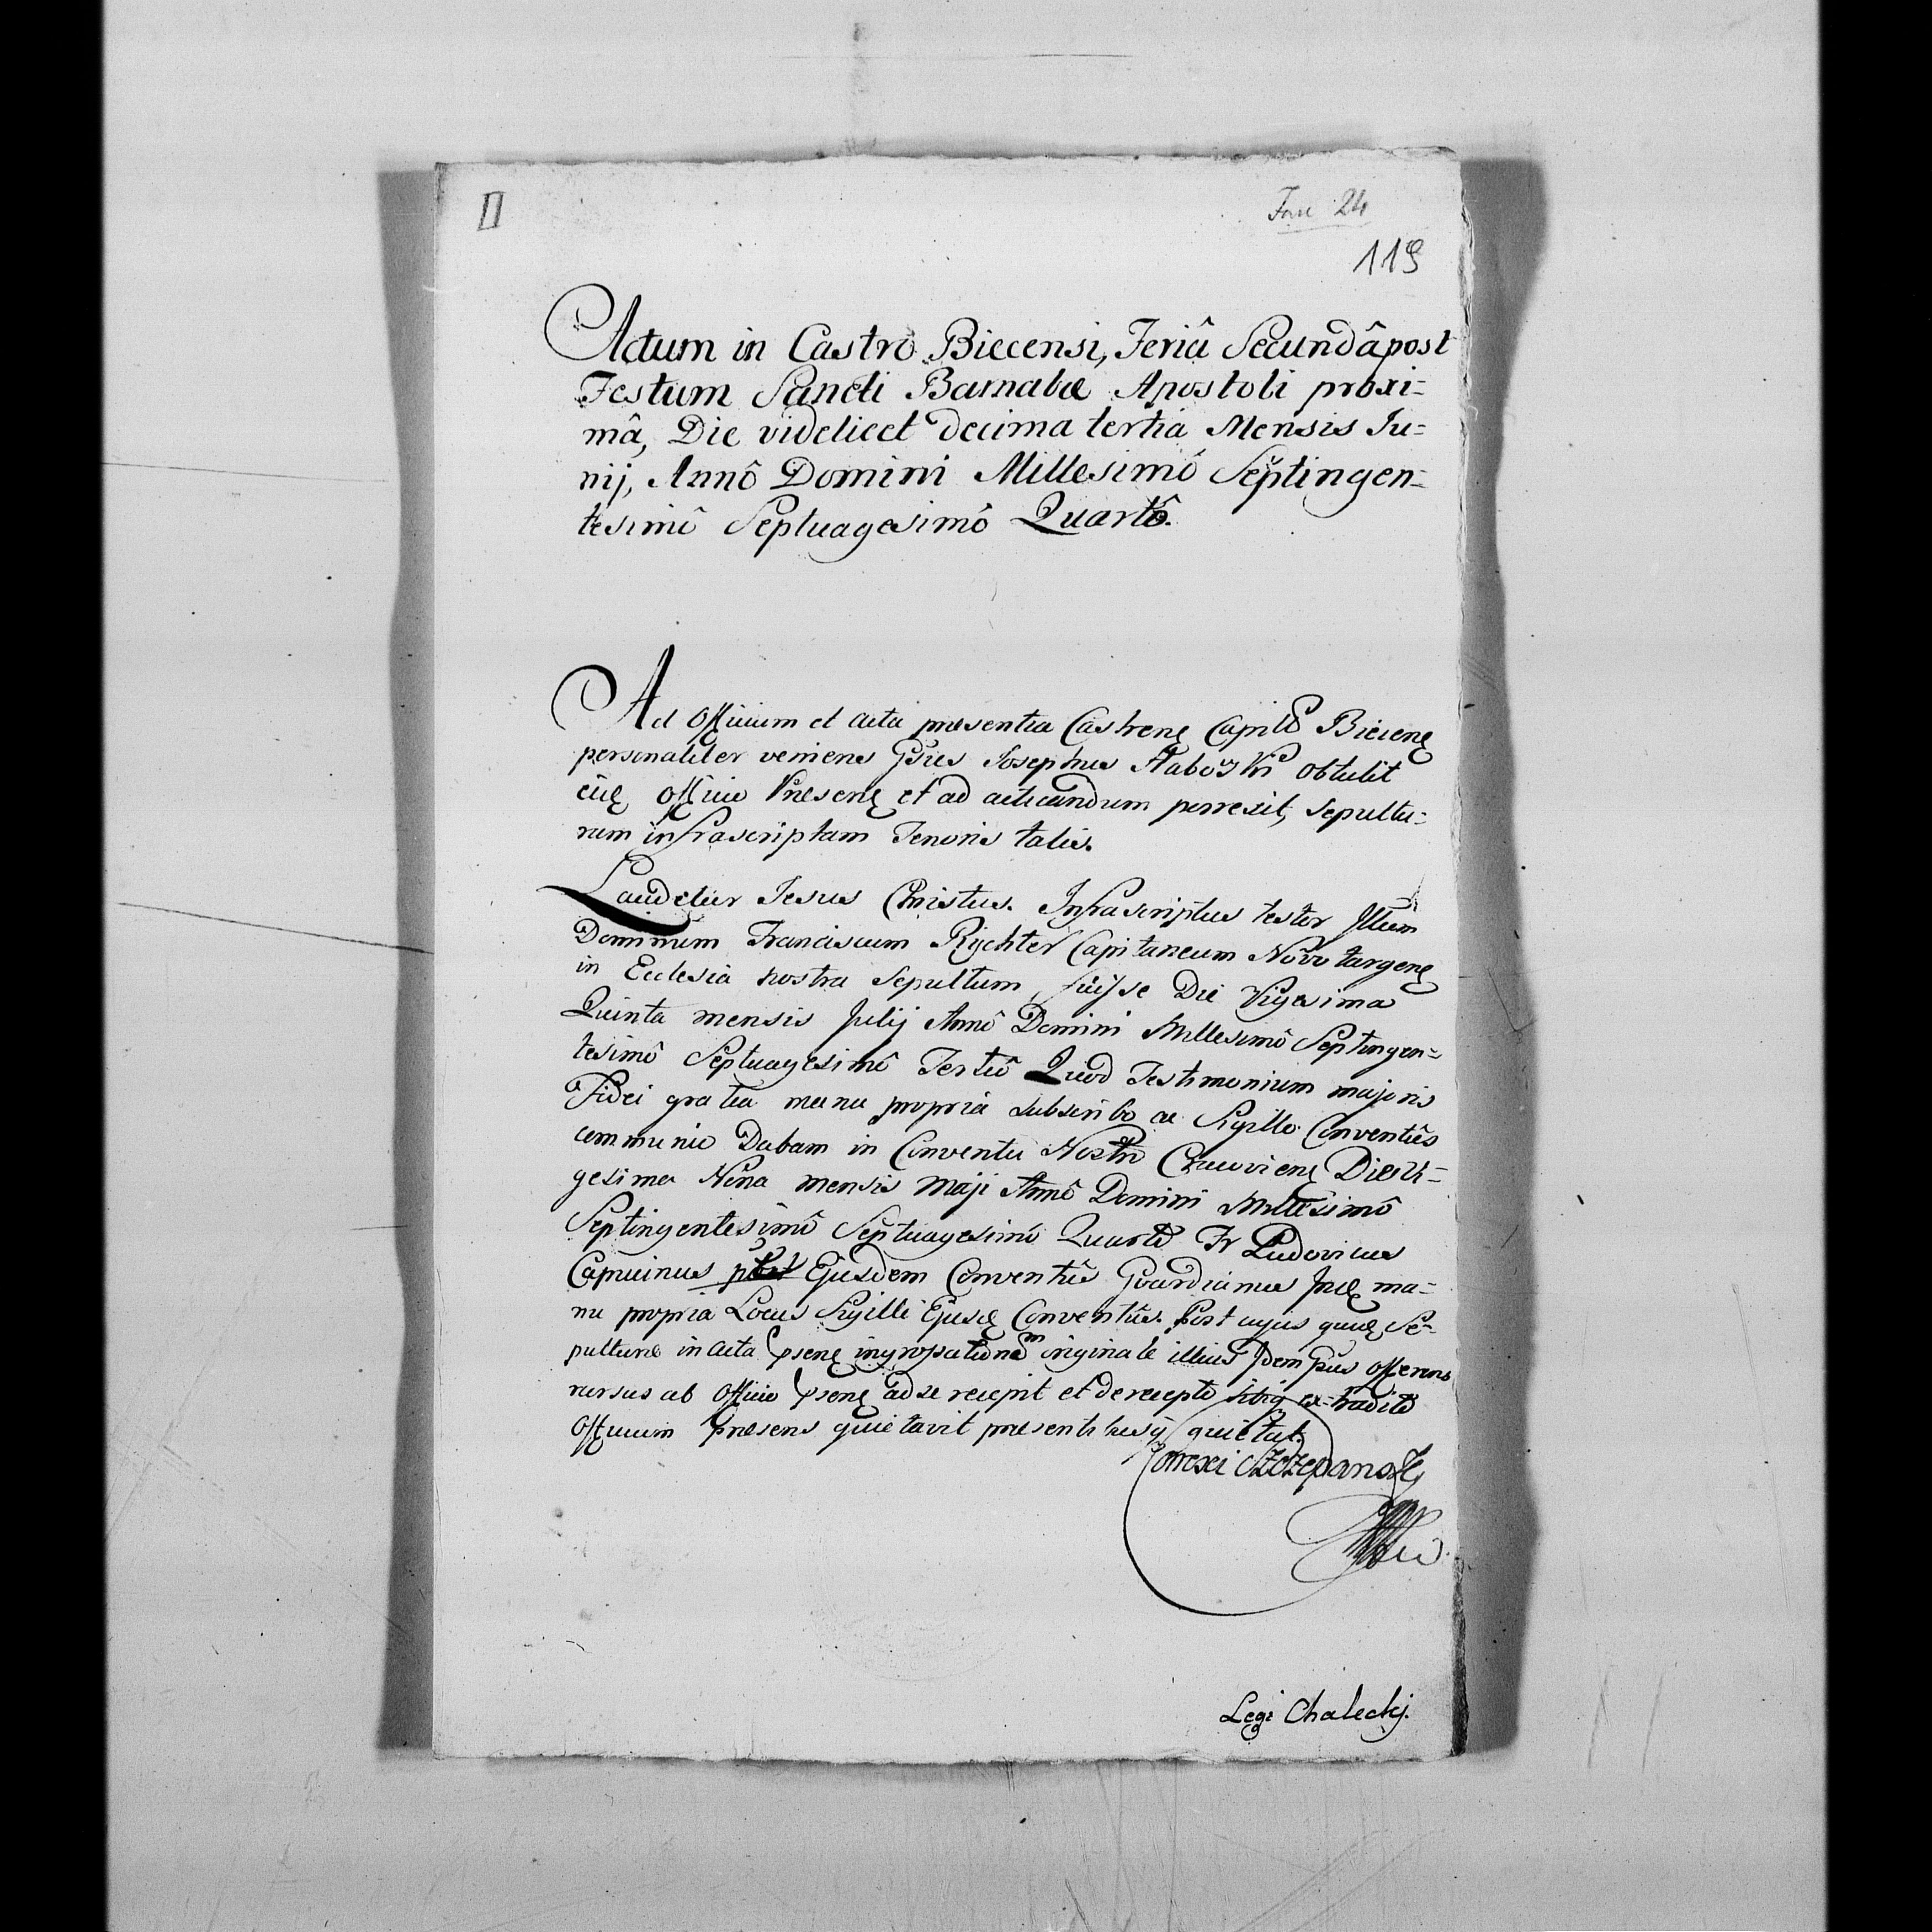 II
Fasc 24
119
Actum in Castro Biecensi, Feriâ Secundâ post
Festum Sancti Barnabæ Apostoli proxi=
mâ, Die videlicet decima tertia Mensis Ju=
nij, Annô Domini Millesimô Septingen=
tesimô Septuagesimô Quartô.
Ad Officium et acta præsentia Castren Capitla Biecen
personaliter veniens Gsus Josephus obtulit
eid officio Præsen et ad acticandum porrexit, sepultu=
ram infrascriptam Tenoris talis.
Laudetur Jesus Christus. Infrascriptus testor Illum
Dominum Franciscum Rychter Capitaneum Novotargen
in Ecclesia nostra Sepultum fuisse Die Vigesima
Quinta mensis Julij Annô Domini Millesimô Septingen=
tesimô Septuagesimô Tertiô Quod Testimonium majoris
Fidei gratia manu propria subscribo ac Sigillo Conventûs
communio Dabam in Conventu Nostro Cracovien Die Vi=
gesima Nona mensis Maji Annô Domini Millesimô
Septingentesimô Septuagesimô Quarto Fr Ludovicus
Capucinus Ejusdem Conventûs Guardianus mpp ma=
nu propria Locus Sigilli Ejusd Conventûs. Post cujus quid Se=
pulturæ in acta psen ingrossationem originale illius Idem Gsus offerens
rursus ab Officio psen ad se recepit et de recepto sibiq ex-tradito
Officium Præsens quietavit præsentibusq quietat.
Correxi Szczepanoski
Legi Chalecki.